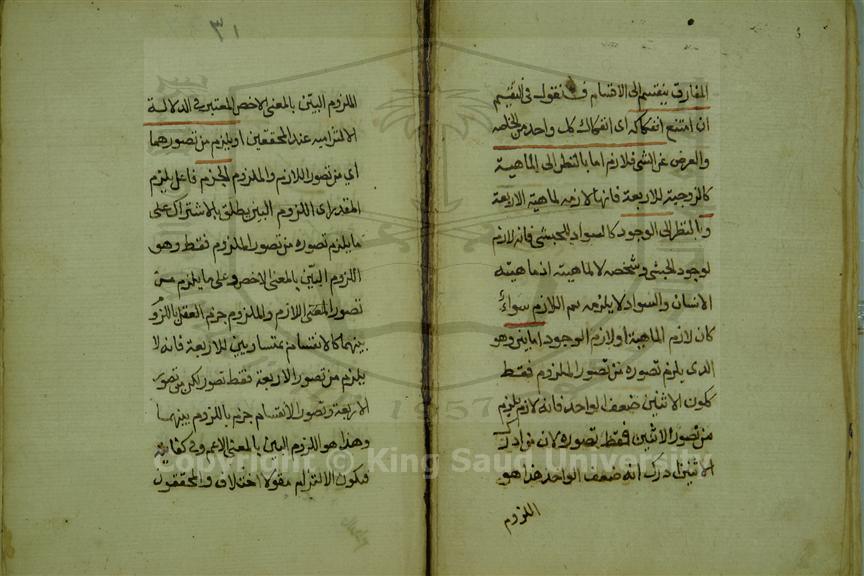 المفارق ينقسم الى الاقسام فنقول في التقسيم
ان امتنع انفكاكه اى انفكاك كل واحد من الخاصه
والعرض عن الشي فلازم اما بالنظر الى الماهية
كالزوجية للاربعة فانها لازمه لماهية الاربعة
و بالنظر الى الوجود كالسواد للحبشي فانه لازم
لوجود الحبشي وشخصه لا لماهيته اذ ماهيته
الانسان والسواد لا يلزمه سم اللازم سواء
كان لازم الماهية او لازم الوجود اما بين وهو
الذى يلزم تصوره من تصور الملزوم فقط
ككون الاثنين ضعف الواحد فانه لازم يلزم
من تصور الاثنين فقط تصوره لان من ادرك
الاثنين ادرك انه ضعف الواحد هذا هو
اللزوم
٣١
اللزوم البين بالمعنى الاخص المعتبر في الدلالة
الالتزاميه عند المحققين او يلزم من تصورهما
اي من تصور اللازم والملزوم الجزم فاعل يلزم
المقدر اى اللزوم البين يطلق بالاشتراك على
ما يلزم تصوره من تصور الملزوم فقط وهو
اللزوم البين بالمعنى الاخص وعلى ما يلزم من
تصور المعنى اللازم والملزوم جزم العقل باللزوم
بينهما كالانقسام بمتساويين للاربعة فانه لا
يلزم من تصور الاربعة فقط تصور لكن من تصور
الاربعة وتصور الانقسام جزم باللزوم بينهما
وهذا هو اللزوم البين بالمعنى الاعم وفي كفايته
فيكون الالتزام مقولا اختلاف والمحققون
Copyright © King Saud University
1957